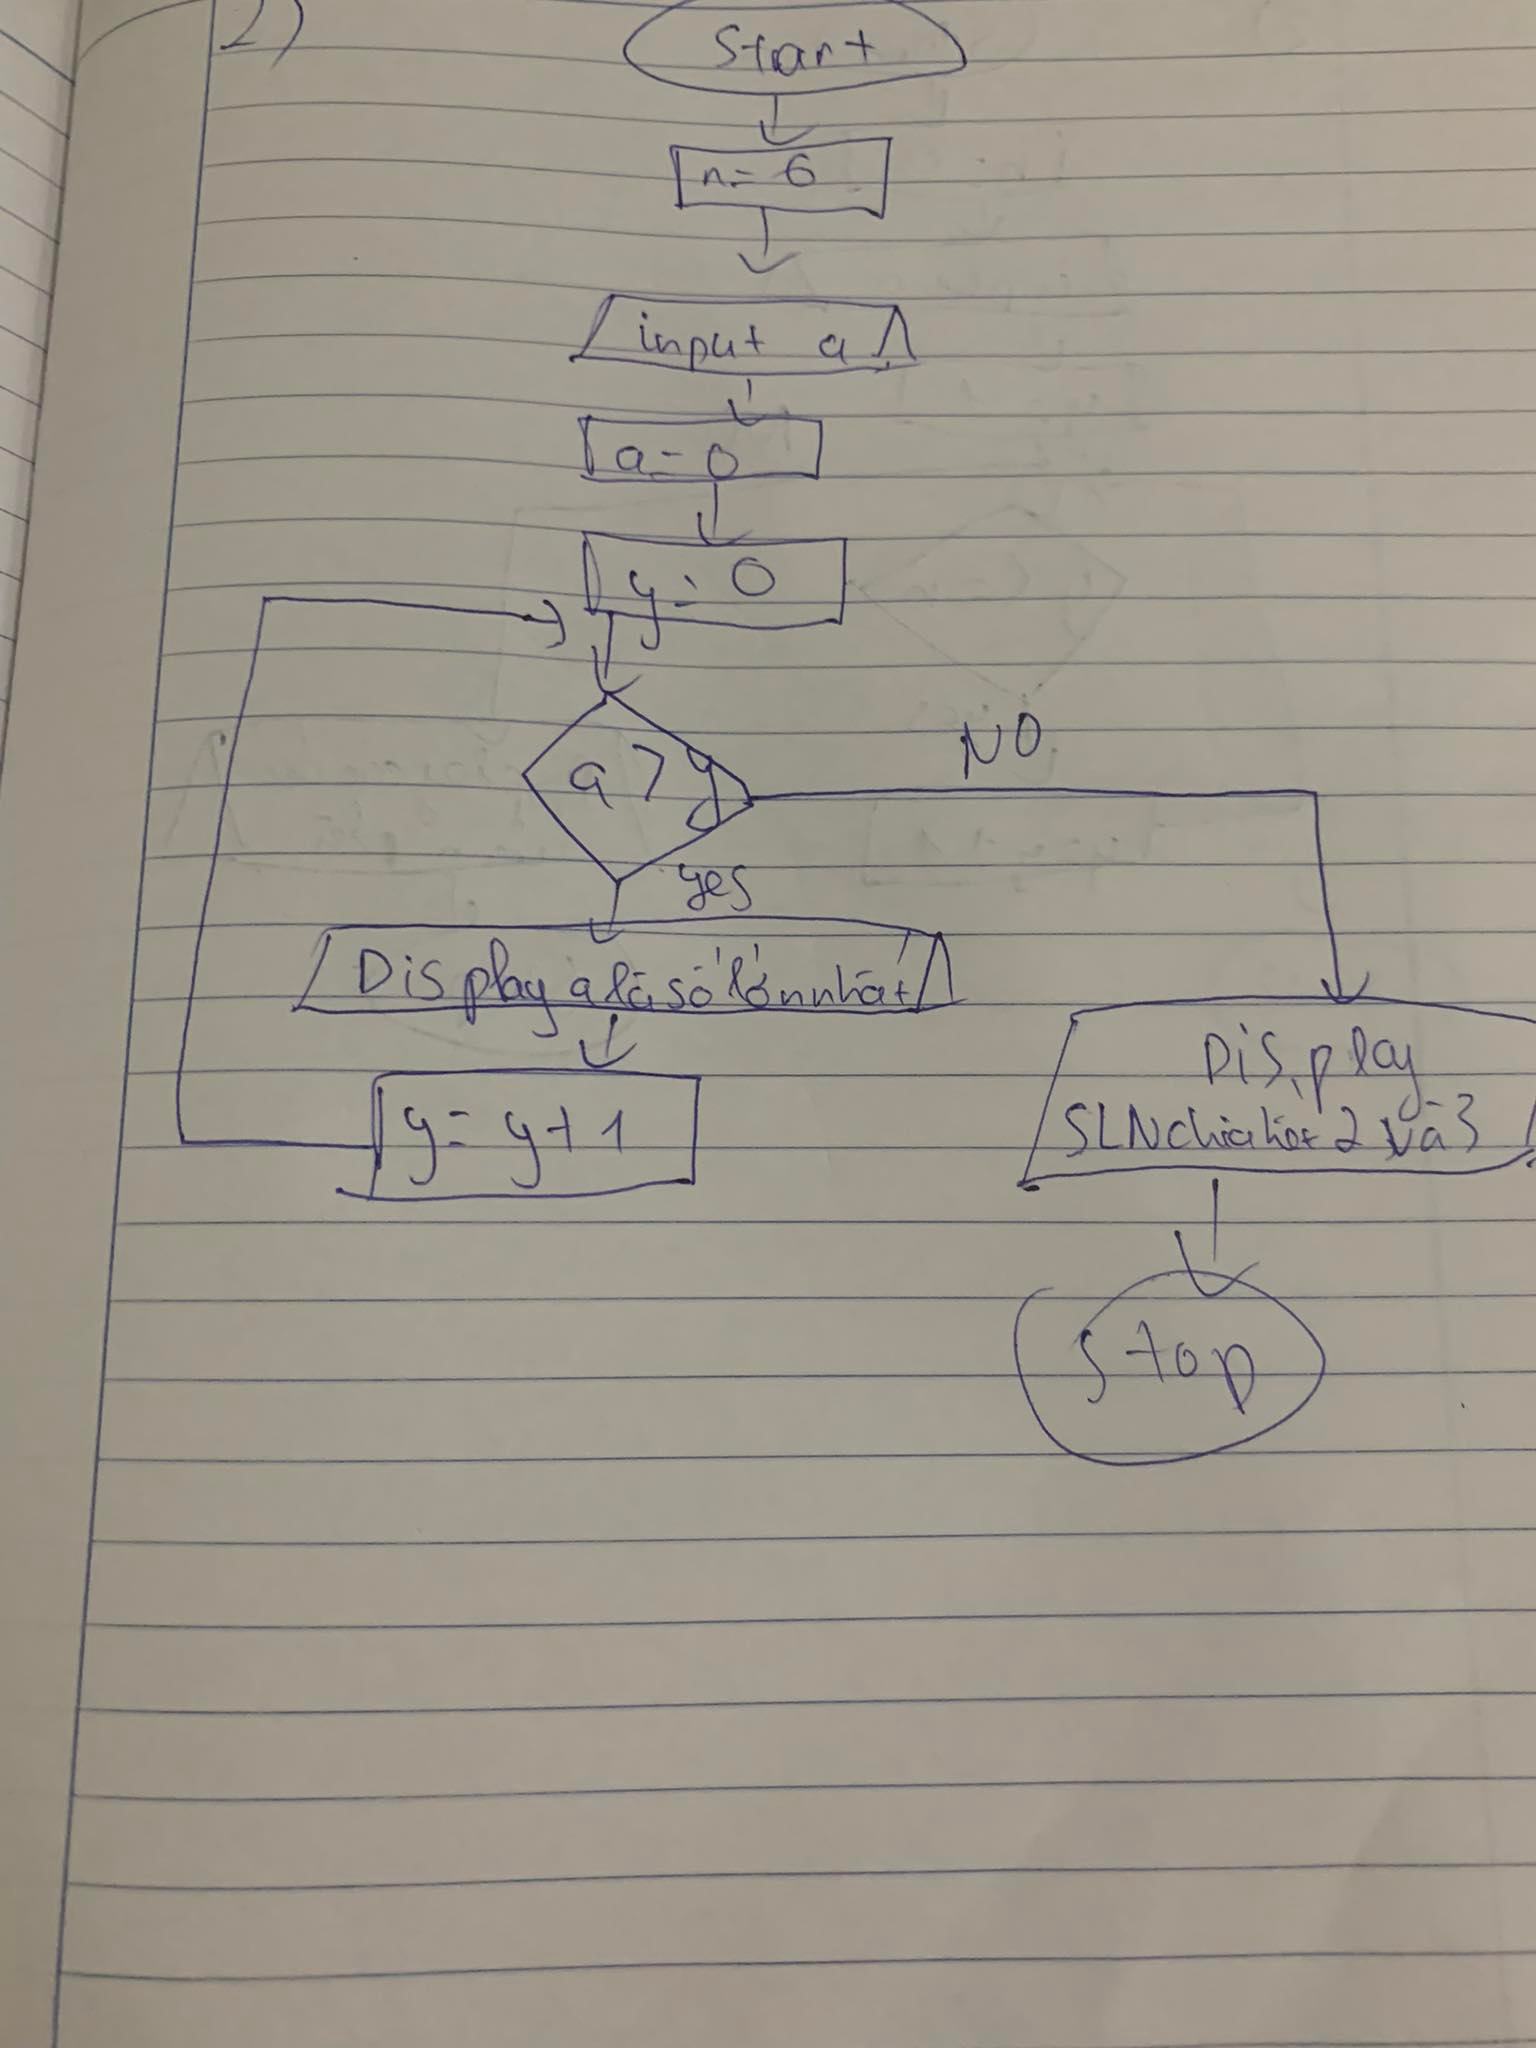 2)
Start
n= 6
input a
a= 0
y= 0
a > y
NO
yes
Display a là số lớn nhất
y= y+1
Display
SLN chia hết 2 và 3
Stop